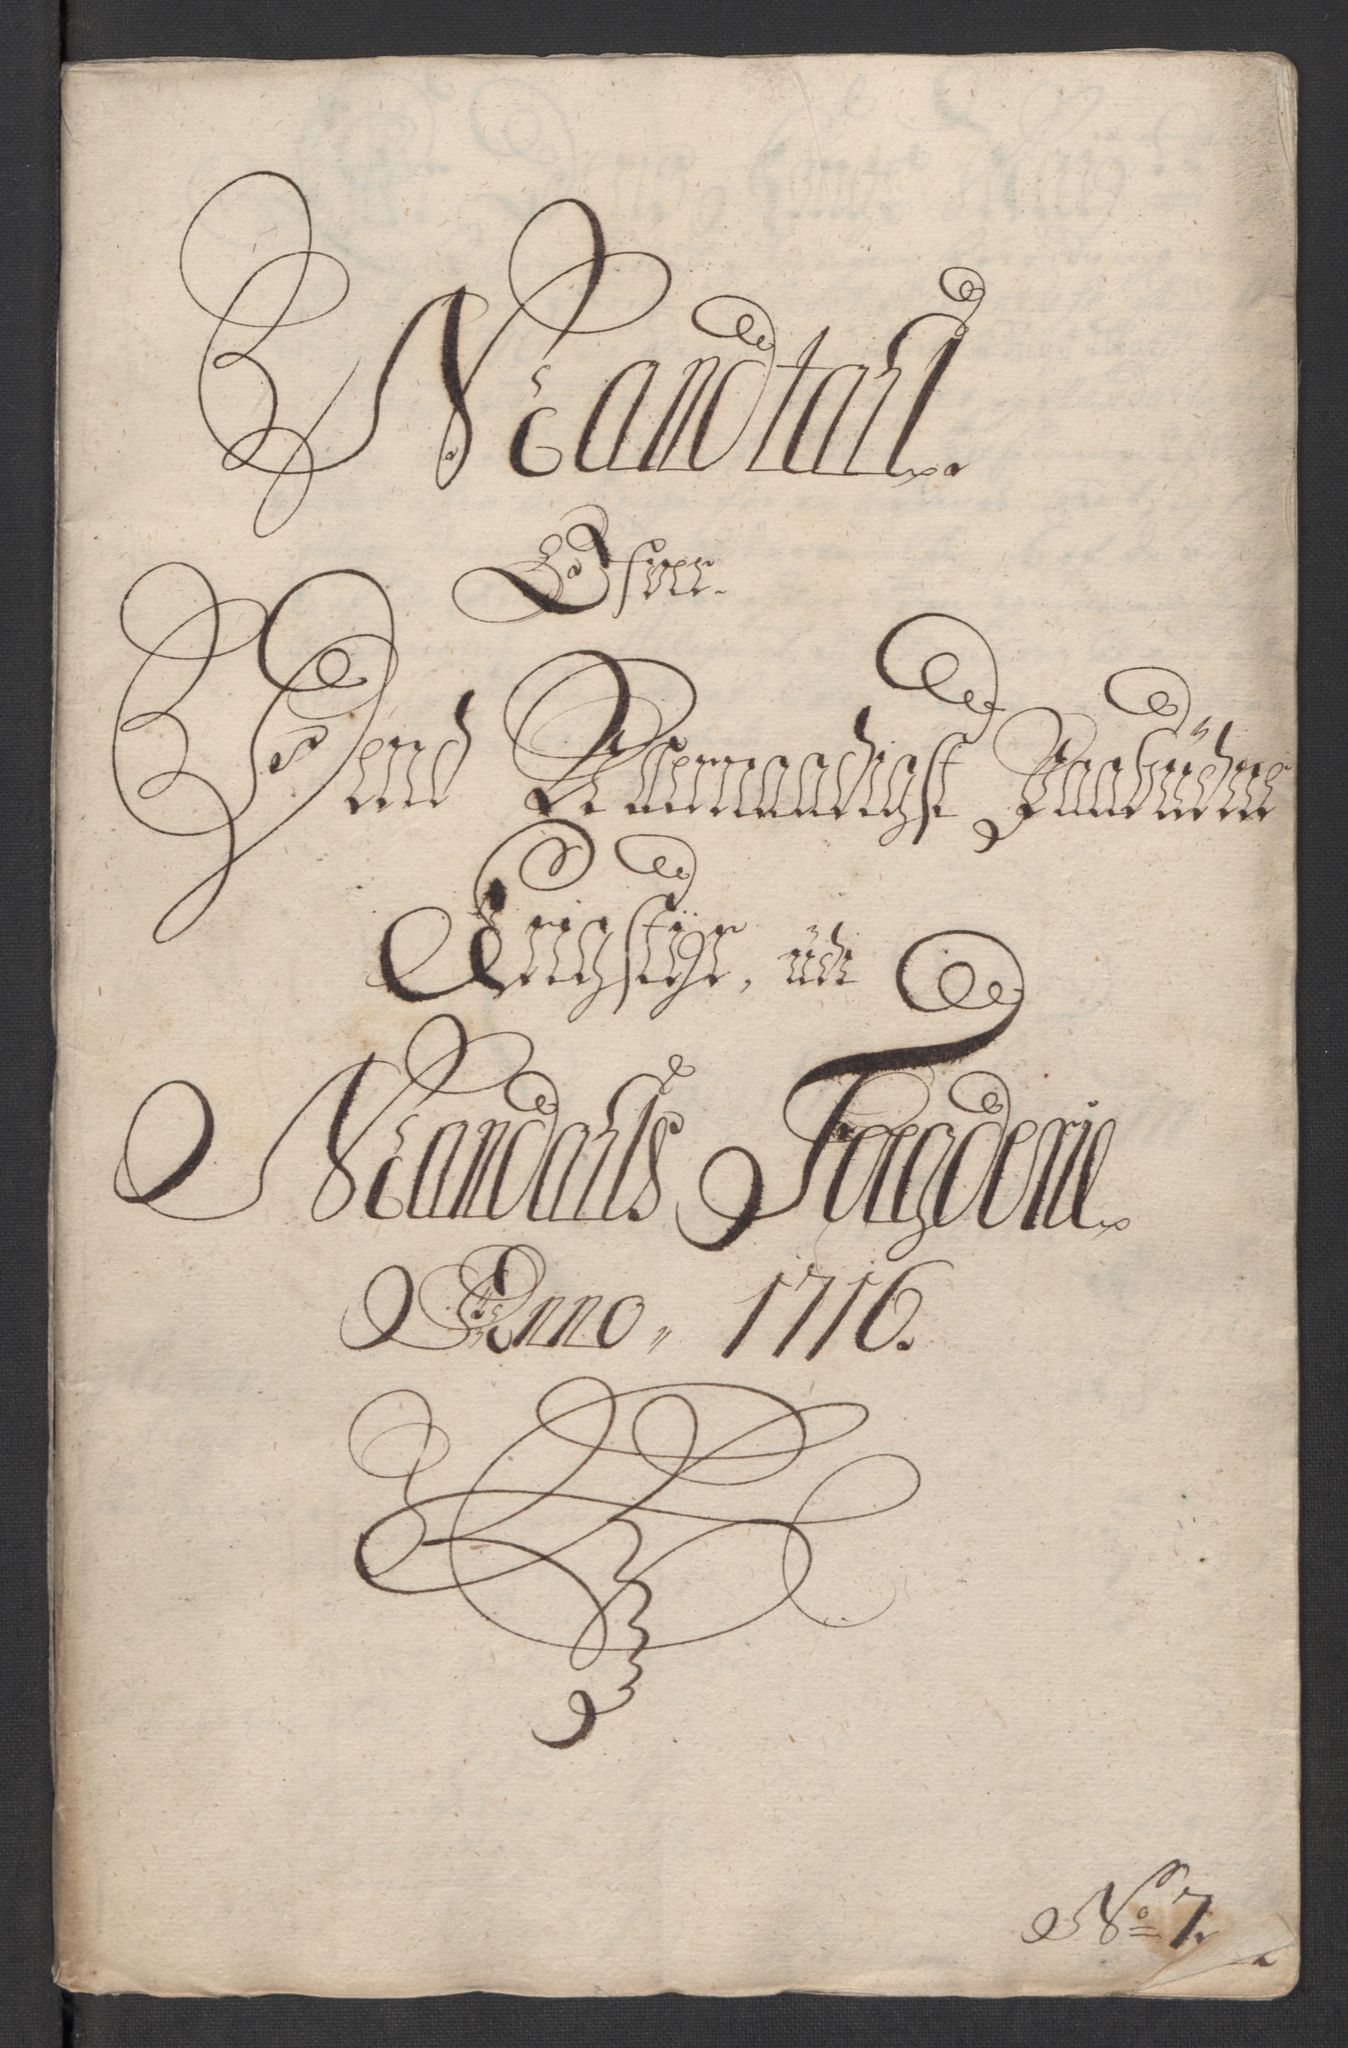 Mandtall.
Ofver
Dend Allernaadigst Paabudne
Krigstyr, udi
Mandahls Fogderie
Anno, 1716.
No 7.